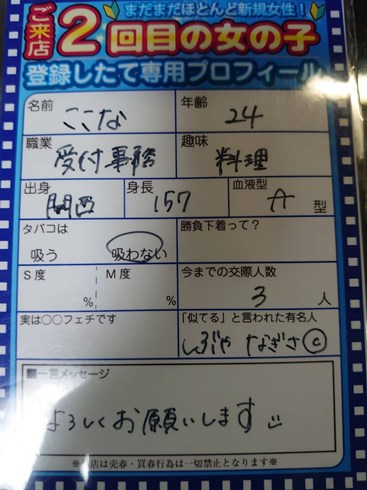 ご来店
まだまだほとんど新規女性！
2回目の女の子
登録したて専用プロフィール
名前 ここな 年齢 24
職業 受付事務 趣味 料理
出身 関西 身長 157 血液型 A 型
タバコは 吸う 吸わない 勝負下着って？
S度 % M度 % 今までの交際人数 3 人
実は〇〇フェチです 「似てる」と言われた有名人
しぶや なぎさ ©
■一言メッセージ
よろしくお願いします
店は売春・買春行為は一切禁止となります※